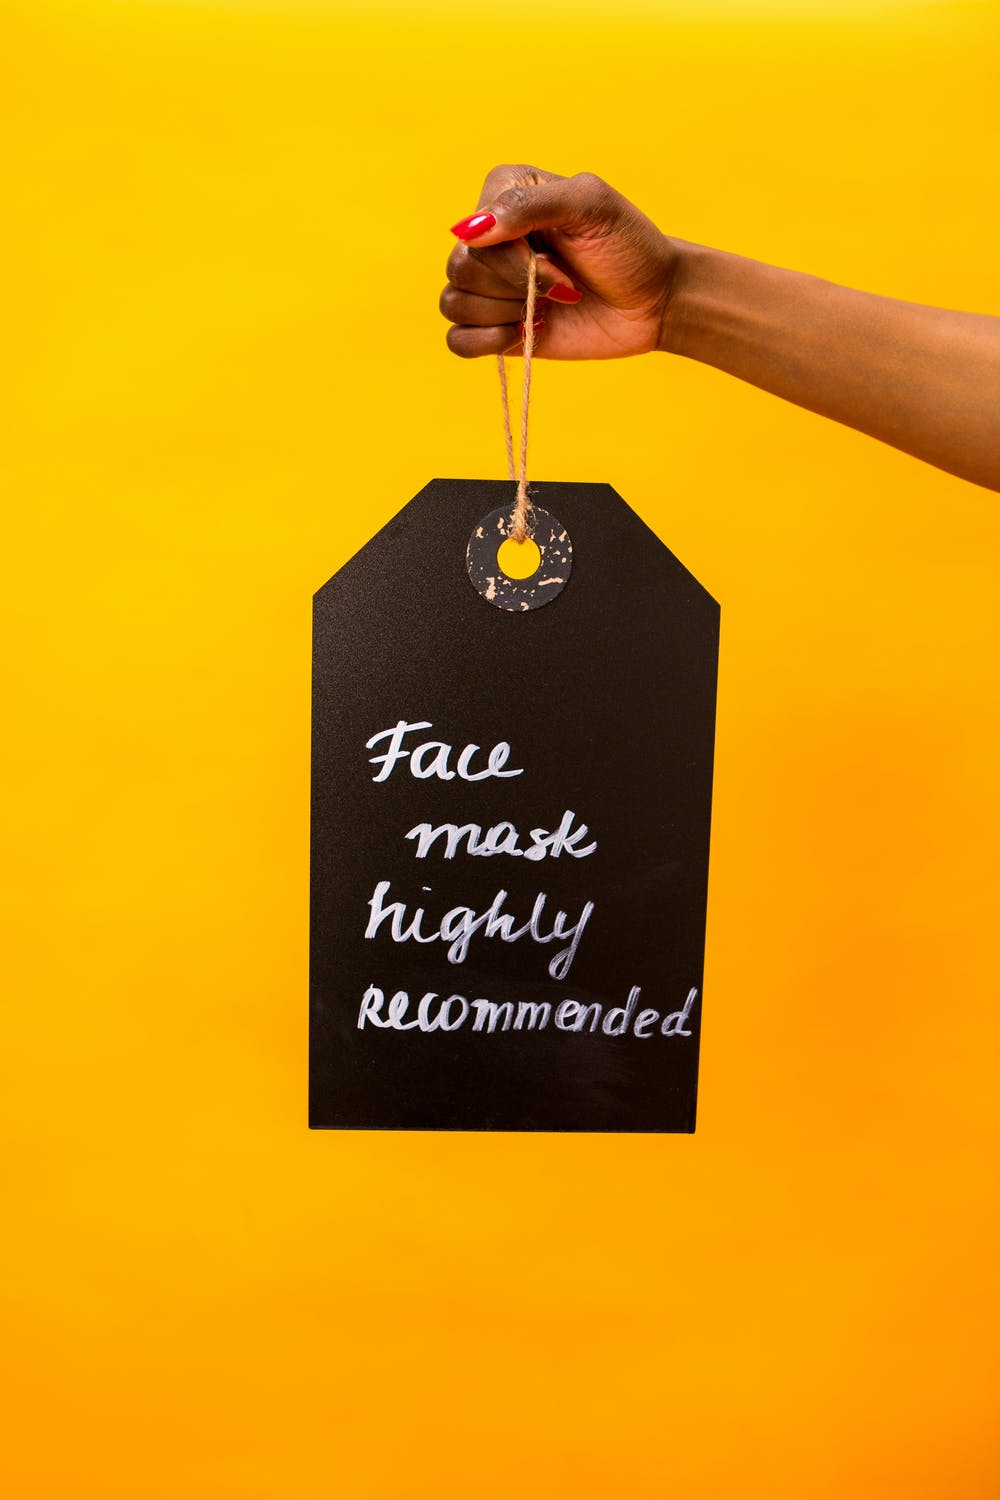 Face
mask
highly
recommended